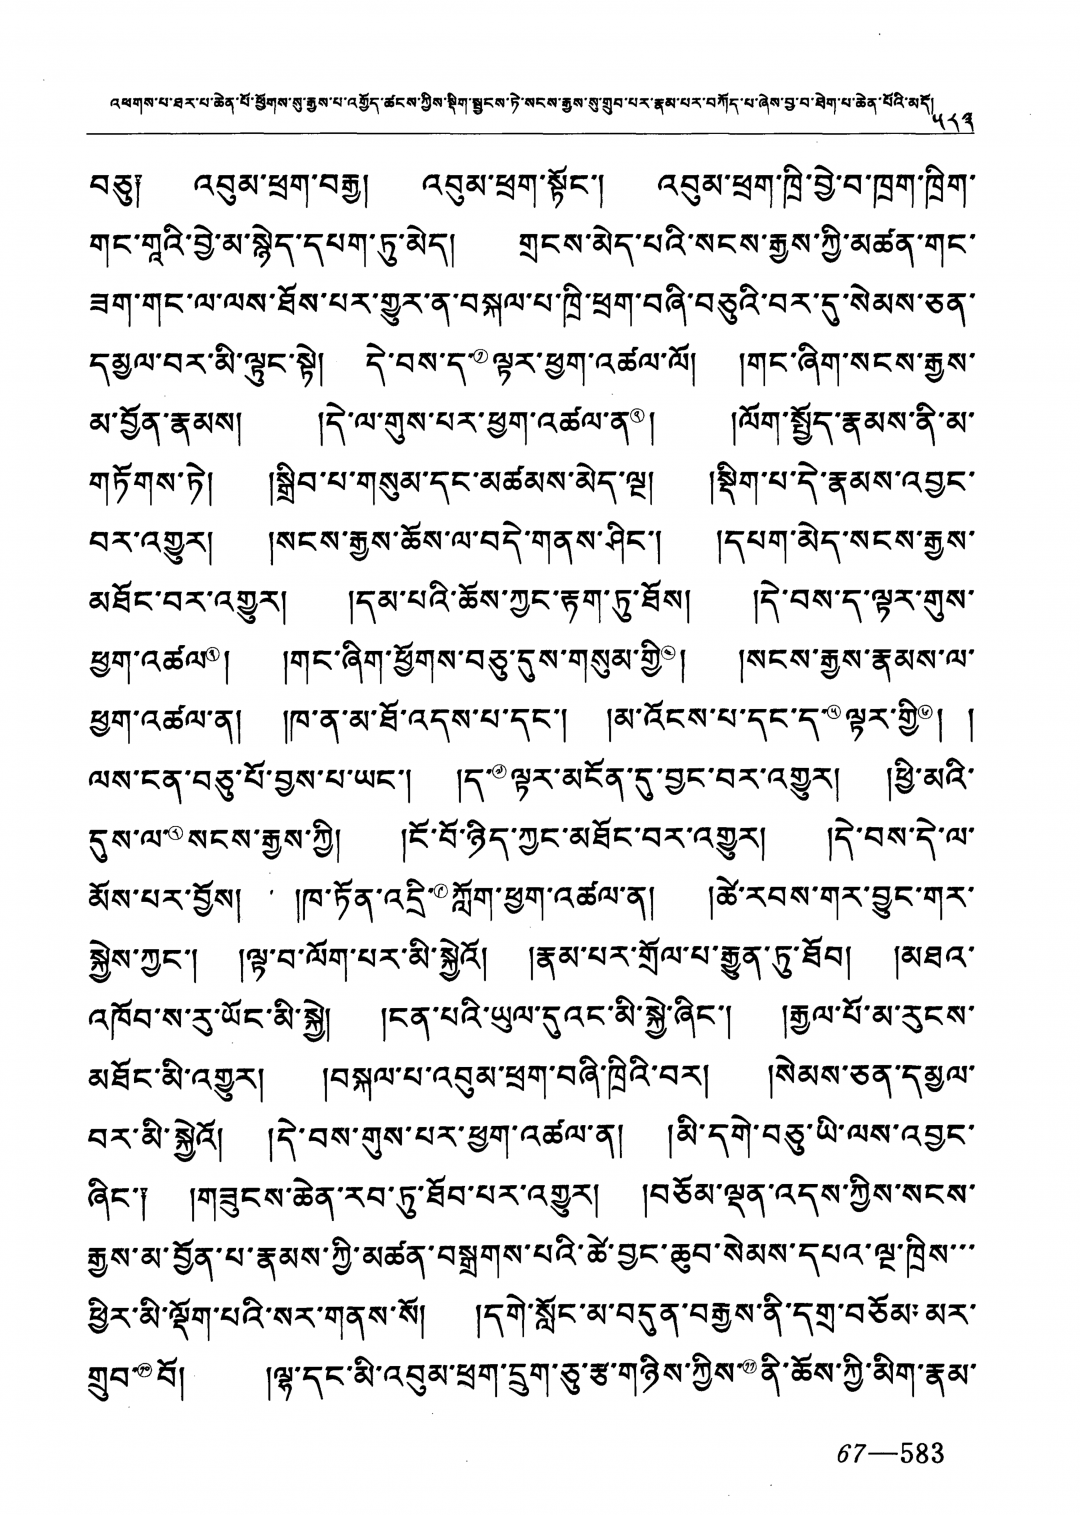 འཕགས་པ་ཐར་པ་ཆེན་པོ་ཕྱོགས་སུ་རྒྱས་པ་འགྱོད་ཚངས་ཀྱིས་སྡིག་སྦྱངས་ཏེ་སངས་རྒྱས་སུ་གྲུབ་པར་རྣམ་པར་བཀོད་པ་ཞེས་བྱ་བ་ཐེག་པ་ཆེན་པོའི་མདོ།
༥༨༣
བཅུ༑ འབུམ་ཕྲག་བརྒྱ། འབུམ་ཕྲག་སྟོང་། འབུམ་ཕྲག་ཁྲི་བྱེ་བ་ཁྲག་ཁྲིག་
གང་གཱའི་བྱེ་མ་སྙེད་དཔག་ཏུ་མེད། གྲངས་མེད་པའི་སངས་རྒྱས་ཀྱི་མཚན་གང་
ཟག་གང་ལ་ལས་ཐོས་པར་གྱུར་ན་བསྐལ་པ་ཁྲི་ཕྲག་བཞི་བཅུའི་བར་དུ་སེམས་ཅན་
དམྱལ་བར་མི་ལྟུང་སྟེ། དེ་བས་ད་①ལྟར་ཕྱག་འཚལ་ལོ། །གང་ཞིག་སངས་རྒྱས་
མ་བྱོན་རྣམས། །དེ་ལ་གུས་པར་ཕྱག་འཚལ་ན②། །ལོག་སྤྱོད་རྣམས་ནི་མ་
གཏོགས་ཏེ། །སྒྲིབ་པ་གསུམ་དང་མཚམས་མེད་ལྔ། །སྡིག་པ་དེ་རྣམས་འབྱང་
བར་འགྱུར། །སངས་རྒྱས་ཆོས་ལ་བདེ་གནས་ཤིང་། །དཔག་མེད་སངས་རྒྱས་
མཐོང་བར་འགྱུར། །དམ་པའི་ཆོས་ཀྱང་རྟག་ཏུ་ཐོས། །དེ་བས་ད་ལྟར་གུས་
ཕྱག་འཚལ③། །གང་ཞིག་ཕྱོགས་བཅུ་དུས་གསུམ་གྱི④། །སངས་རྒྱས་རྣམས་ལ་
ཕྱག་འཚལ་ན། །ཁ་ན་མ་ཐོ་འདས་པ་དང་། །མ་འོངས་པ་དང་ད་⑤ལྟར་གྱི⑥། །
ལས་ངན་བཅུ་པོ་བྱས་པ་ཡང་། །ད་⑦ལྟར་མངོན་དུ་བྱང་བར་འགྱུར། །ཕྱི་མའི་
དུས་ལ་⑧སངས་རྒྱས་ཀྱི། །ངོ་བོ་ཉིད་ཀྱང་མཐོང་བར་འགྱུར། །དེ་བས་དེ་ལ་
མོས་པར་བྱོས། །ཁ་ཏོན་འདྲི་⑨ཀློག་ཕྱག་འཚལ་ན། །ཚེ་རབས་གར་བྱུང་གར་
སྐྱེས་ཀྱང་། །ལྟ་བ་ལོག་པར་མི་སྐྱེའོ། །རྣམ་པར་གྲོལ་པ་རྒྱུན་ཏུ་ཐོབ། །མཐའ་
འཁོབ་ས་རུ་ཡོང་མི་སྐྱེ། །ངན་པའི་ཡུལ་དུའང་མི་སྐྱེ་ཞིང་། །རྒྱལ་པོ་མ་རུངས་
མཐོང་མི་འགྱུར། །བསྐལ་པ་འབུམ་ཕྲག་བཞི་ཁྲིའི་བར། །སེམས་ཅན་དམྱལ་
བར་མི་སྐྱེའོ། །དེ་བས་གུས་པར་ཕྱག་འཚལ་ན། །མི་དགེ་བཅུ་ཡི་ལས་འབྱང་
ཞིང་༑ །གཟུངས་ཆེན་རབ་ཏུ་ཐོབ་པར་འགྱུར། །བཅོམ་ལྡན་འདས་ཀྱིས་སངས་
རྒྱས་མ་བྱོན་པ་རྣམས་ཀྱི་མཚན་བསྒྲགས་པའི་ཚེ་བྱང་ཆུབ་སེམས་དཔའ་ལྔ་ཁྲིས་་་
ཕྱིར་མི་ལྡོག་པའི་སར་གནས་སོ། །དགེ་སློང་མ་བདུན་བརྒྱས་ནི་དགྲ་བཅོམ་མར་
གྲུབ་⑩བོ། །ལྷ་དང་མི་འབུམ་ཕྲག་དྲུག་ཅུ་རྩ་གཉིས་ཀྱིས་⑪ནི་ཆོས་ཀྱི་མིག་རྣམ་
67—583